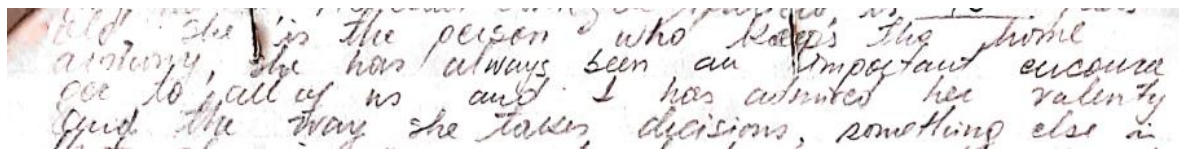 old she is the person who keeps the home
armony, she has always been an important encoura
ger to all of us and I has admired her valenty
and the way she takes decisions, something else is